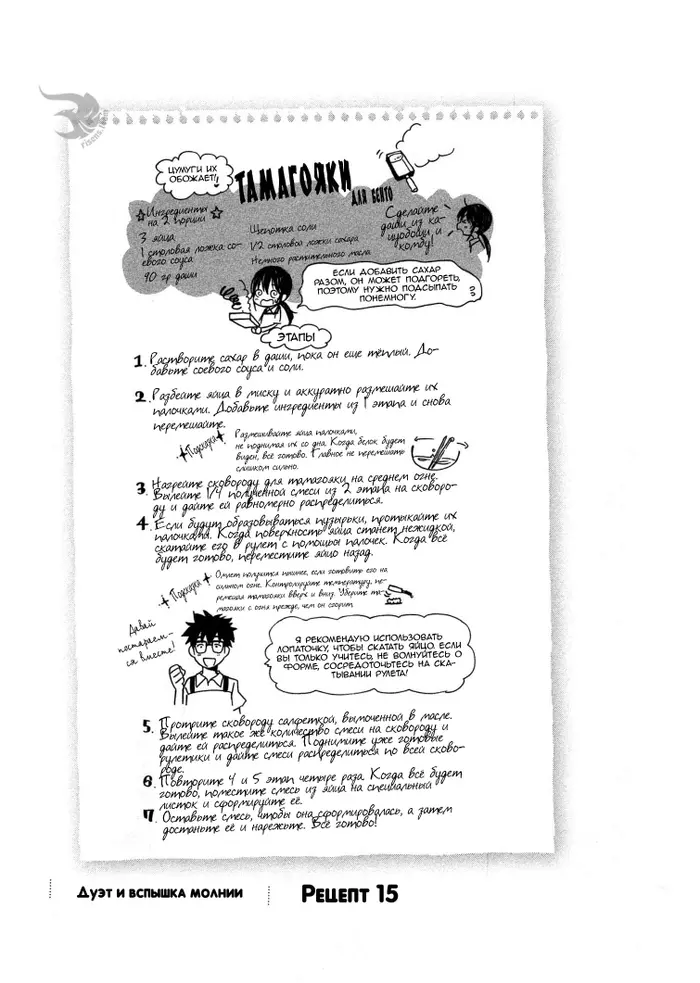 risens.team
ЦУМУГИ ИХ
ОБОЖАЕТ!!
ТАМАГОЯКИ
ДЛЯ БЕНТО
☆Ингредиенты
на 2 порции☆
3 яйца
1 столовая ложка со-
евого соуса
90 гр даши
Щепотка соли
1/2 столовой ложки сахара
Немного растительного масла
Сделайте
даши из ка-
цуобоши и
комбу!
ЕСЛИ ДОБАВИТЬ САХАР
РАЗОМ, ОН МОЖЕТ ПОДГОРЕТЬ,
ПОЭТОМУ НУЖНО ПОДСЫПАТЬ
ПОНЕМНОГУ.
ЭТАПЫ
1. Растворите сахар в даши, пока он еще тёплый. До-
бавьте соевого соуса и соли.
2. Разбейте яйца в миску и аккуратно размешайте их
палочками. Добавьте ингредиенты из 1 этапа и снова
перемешайте.
+Подсказка+
Размешивайте яйца палочками,
не поднимая их со дна. Когда белок будет
виден, всё готово. Главное не перемешать
слишком сильно.
3. Нагрейте сковороду для тамагояки на среднем огне.
Вылейте 1/4 полученной смеси из 2 этапа на сковоро-
ду и дайте ей равномерно распределиться.
4. Если будут образовываться пузырьки, протыкайте их
палочками. Когда поверхность яйца станет нежидкой,
скатайте его в рулет с помощью палочек. Когда всё
будет готово, переместите яйцо назад.
+Подсказка+
Омлет получится пышнее, если готовить его на
сильном огне. Контролируйте температуру, пе-
ремещая тамагояки вверх и вниз. Уберите та-
магояки с огня прежде, чем он сгорит.
Давай
постараем-
ся вместе!
Я РЕКОМЕНДУЮ ИСПОЛЬЗОВАТЬ
ЛОПАТОЧКУ, ЧТОБЫ СКАТАТЬ ЯЙЦО. ЕСЛИ
ВЫ ТОЛЬКО УЧИТЕСЬ, НЕ ВОЛНУЙТЕСЬ О
ФОРМЕ, СОСРЕДОТОЧЬТЕСЬ НА СКА-
ТЫВАНИИ РУЛЕТА!
5. Протрите сковороду салфеткой, вымоченной в масле.
Вылейте такое же количество смеси на сковороду и
дайте ей распределиться. Поднимите уже готовые
рулетики и дайте смеси распределиться по всей сково-
роде.
6. Повторите 4 и 5 этап четыре раза. Когда всё будет
готово, поместите смесь из яйца на специальный
листок и сформируйте её.
7. Оставьте смесь, чтобы она сформировалась, а затем
достаньте её и нарежьте. Всё готово!
ДУЭТ И ВСПЫШКА МОЛНИИ
РЕЦЕПТ 15